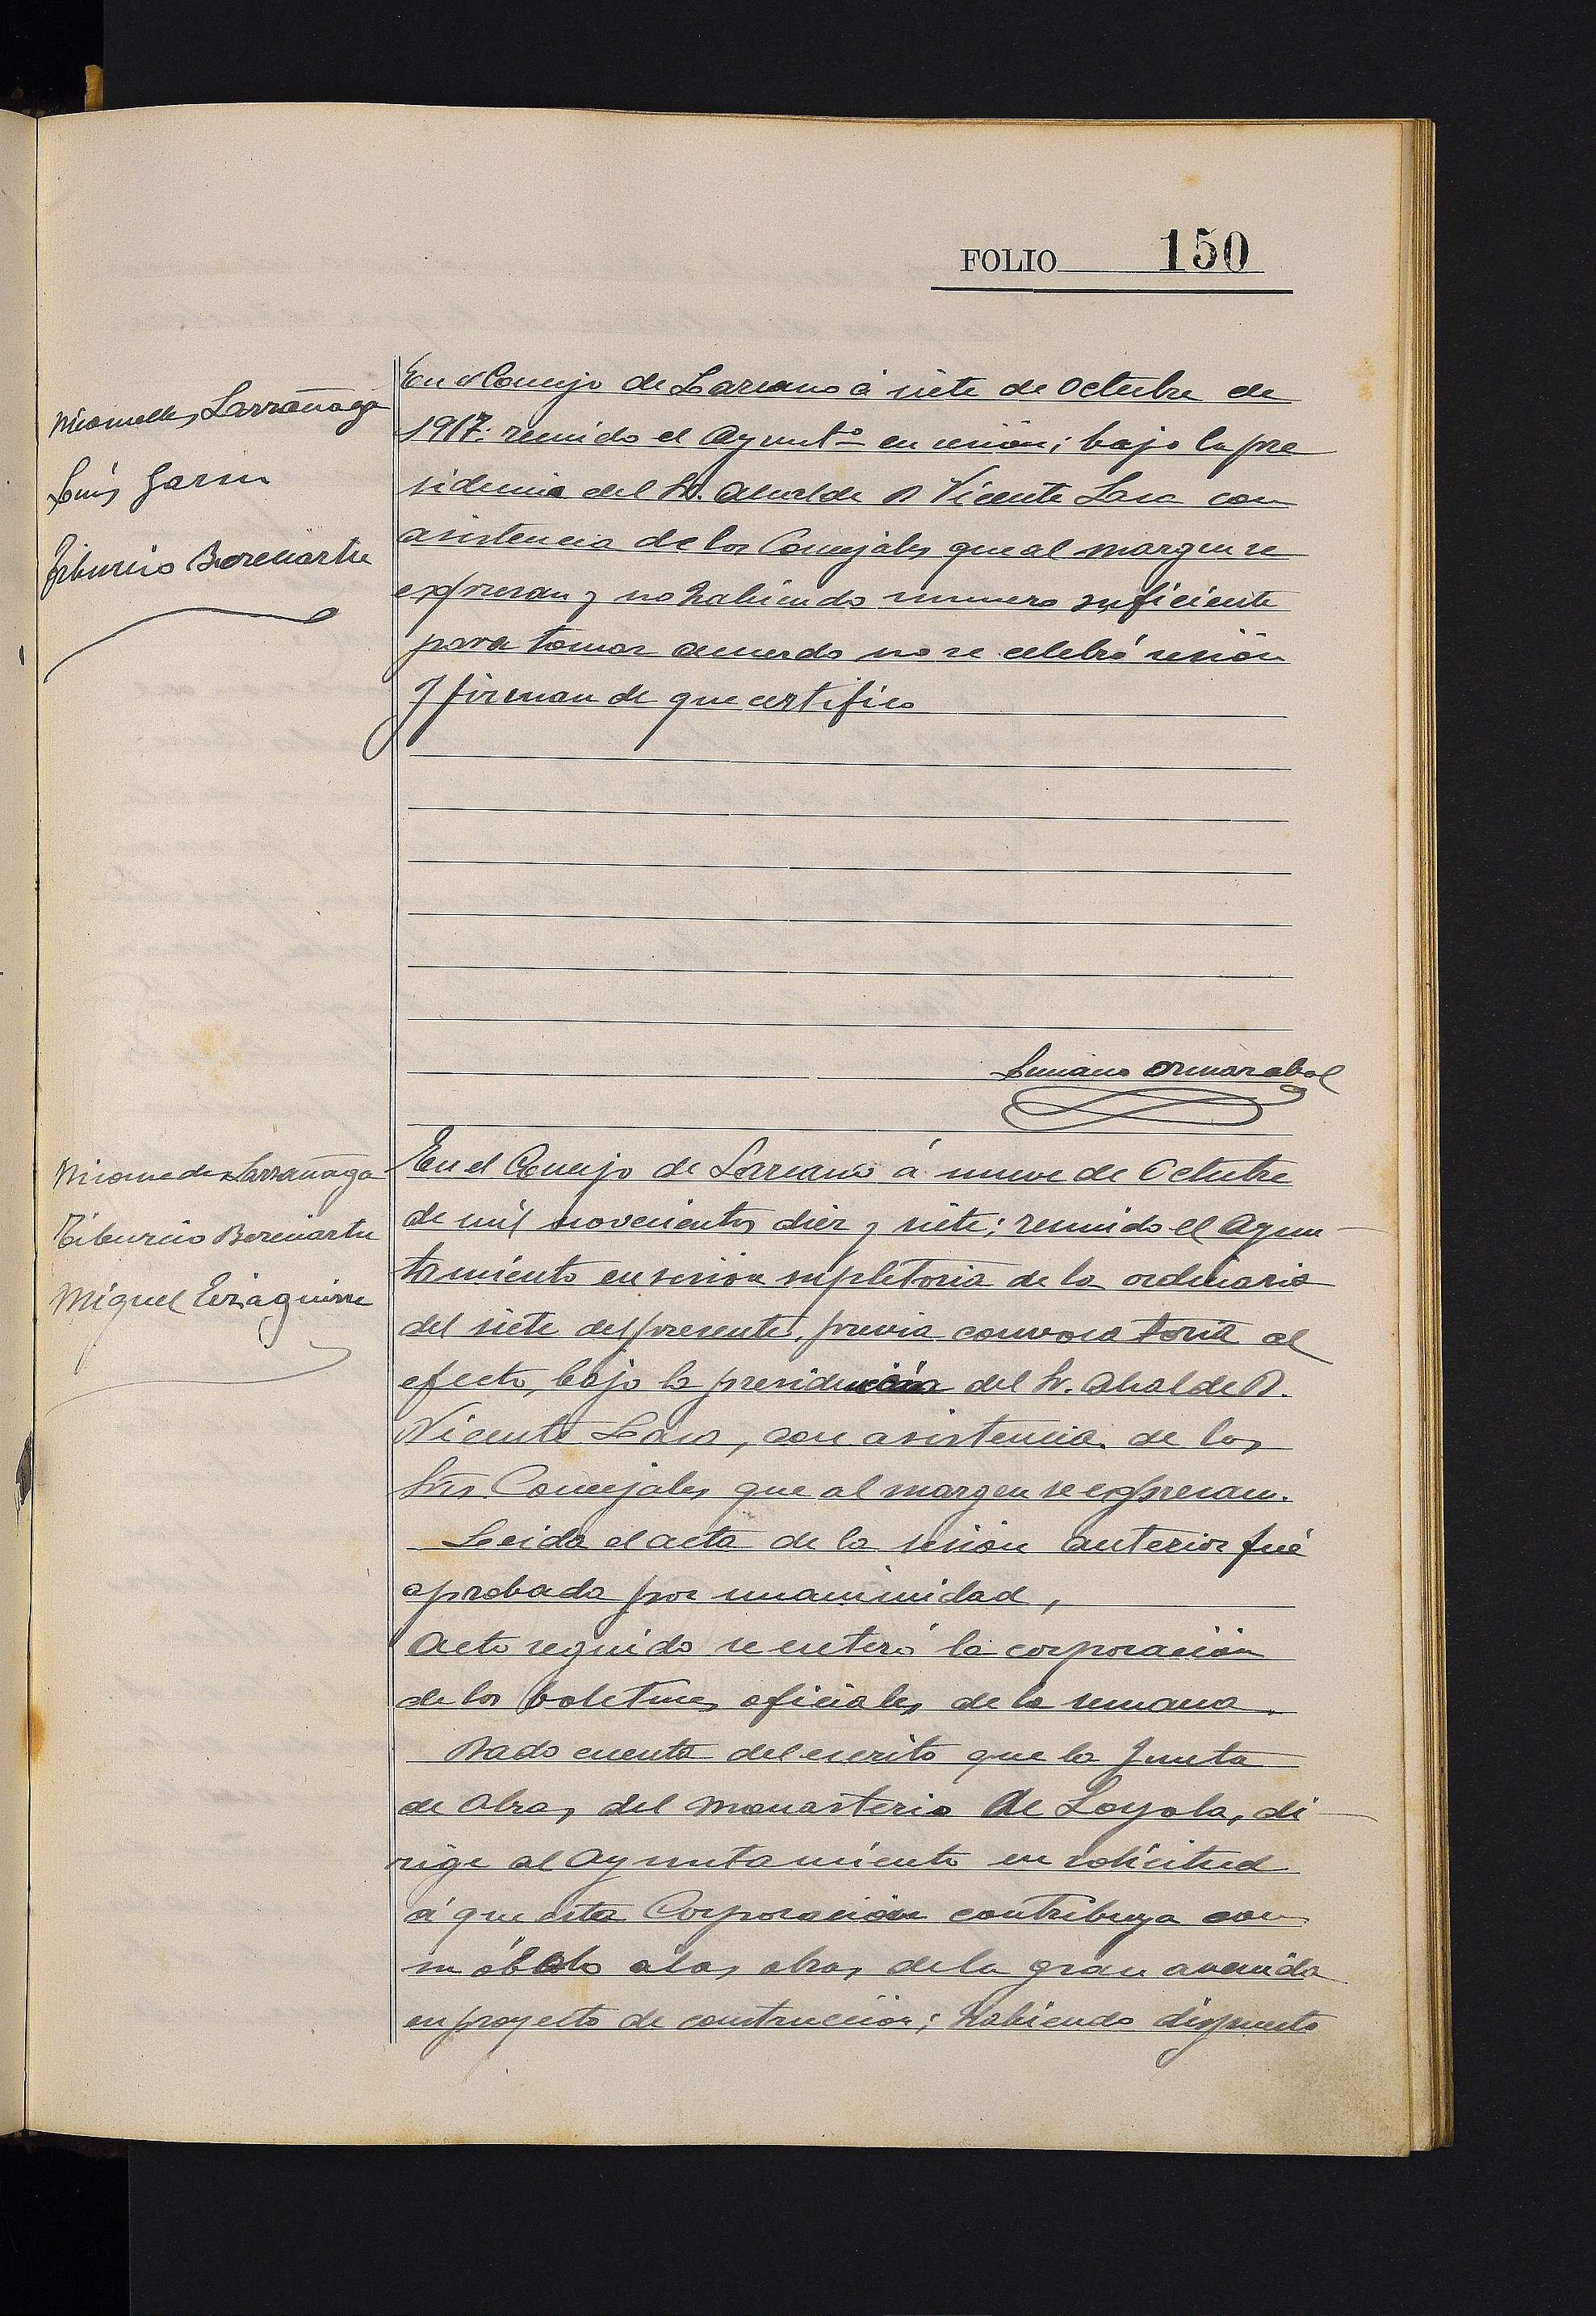 FOLIO 150
Nicomedes Larrañaga
Luis Garin
Tiburcio Bereciartu
En el Concejo de Lazcano á siete de Octubre de
1917: reunido el Ayuntº en sesion; bajo la pre
sidencia del Sr. Alcalde D Vicente Lasa con
asistencia de los Concejales que al margen se
expresan y no habiendo numero suficiente
para tomar acuerdo no se celebró sesión
y firman de que certifico
Luciano Ormazabal
Nicomedes Larrañaga
Tiburcio Bereciartu
Miguel Eizaguirre
En el Concejo de Lazcano á nueve de Octubre
de mil novecientos diez y siete; reunido el Ayun-
tamiento en sesion supletoria de la ordinaria
del siete del presente, previa convocatoria al
efecto, bajo la presidencia del Sr. Alcalde D.
Vicente Lasa, con asistencia de los
Srs. Concejales que al margen se expresan.
Leida el acta de la sesión anterior fué
aprobada por unanimidad,
Acto seguido se enteró la corporación
de los boletines oficiales de la semana.
Dado cuenta del escrito que la Junta
de Obras del Monasterio de Loyola, di-
rige al Ayuntamiento en solicitud
á que esta Corporación contribuya con
su óbolo a las obras de la gran avenida
en proyecto de construcción; habiendo dispuesto